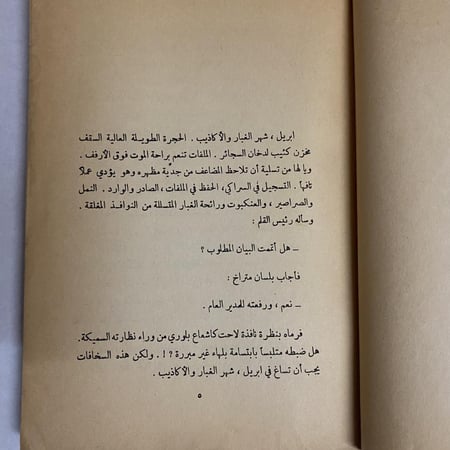 ابريل ، شهر الغبار والأكاذيب . الحجرة الطويلة العالية السقف
مخزن كئيب لدخان السجائر . الملفات تنعم براحة الموت فوق الأرفف .
ويالها من تسلية أن تلاحظ المضاعف من جدية مظهره وهو يؤدي عملاً
تافهاً . التسجيل في السراكي ، الحفظ في الملفات ، الصادر والوارد . النمل
والصراصير ، والعنكبوت ورائحة الغبار المتسللة من النوافذ المغلقة .
وسأله رئيس القلم :
ــ هل أتممت البيان المطلوب ؟
فأجاب بلسان متراخ :
ــ نعم ، ورفعته للمدير العام .
فرماه بنظرة نافذة لاحت كاشعاع بلوري من وراء نظارته السميكة .
هل ضبطه متلبساً بابتسامة بلهاء غير مبررة ؟ ! . ولكن هذه السخافات
يجب أن تساغ في ابريل ، شهر الغبار والأكاذيب .
٥